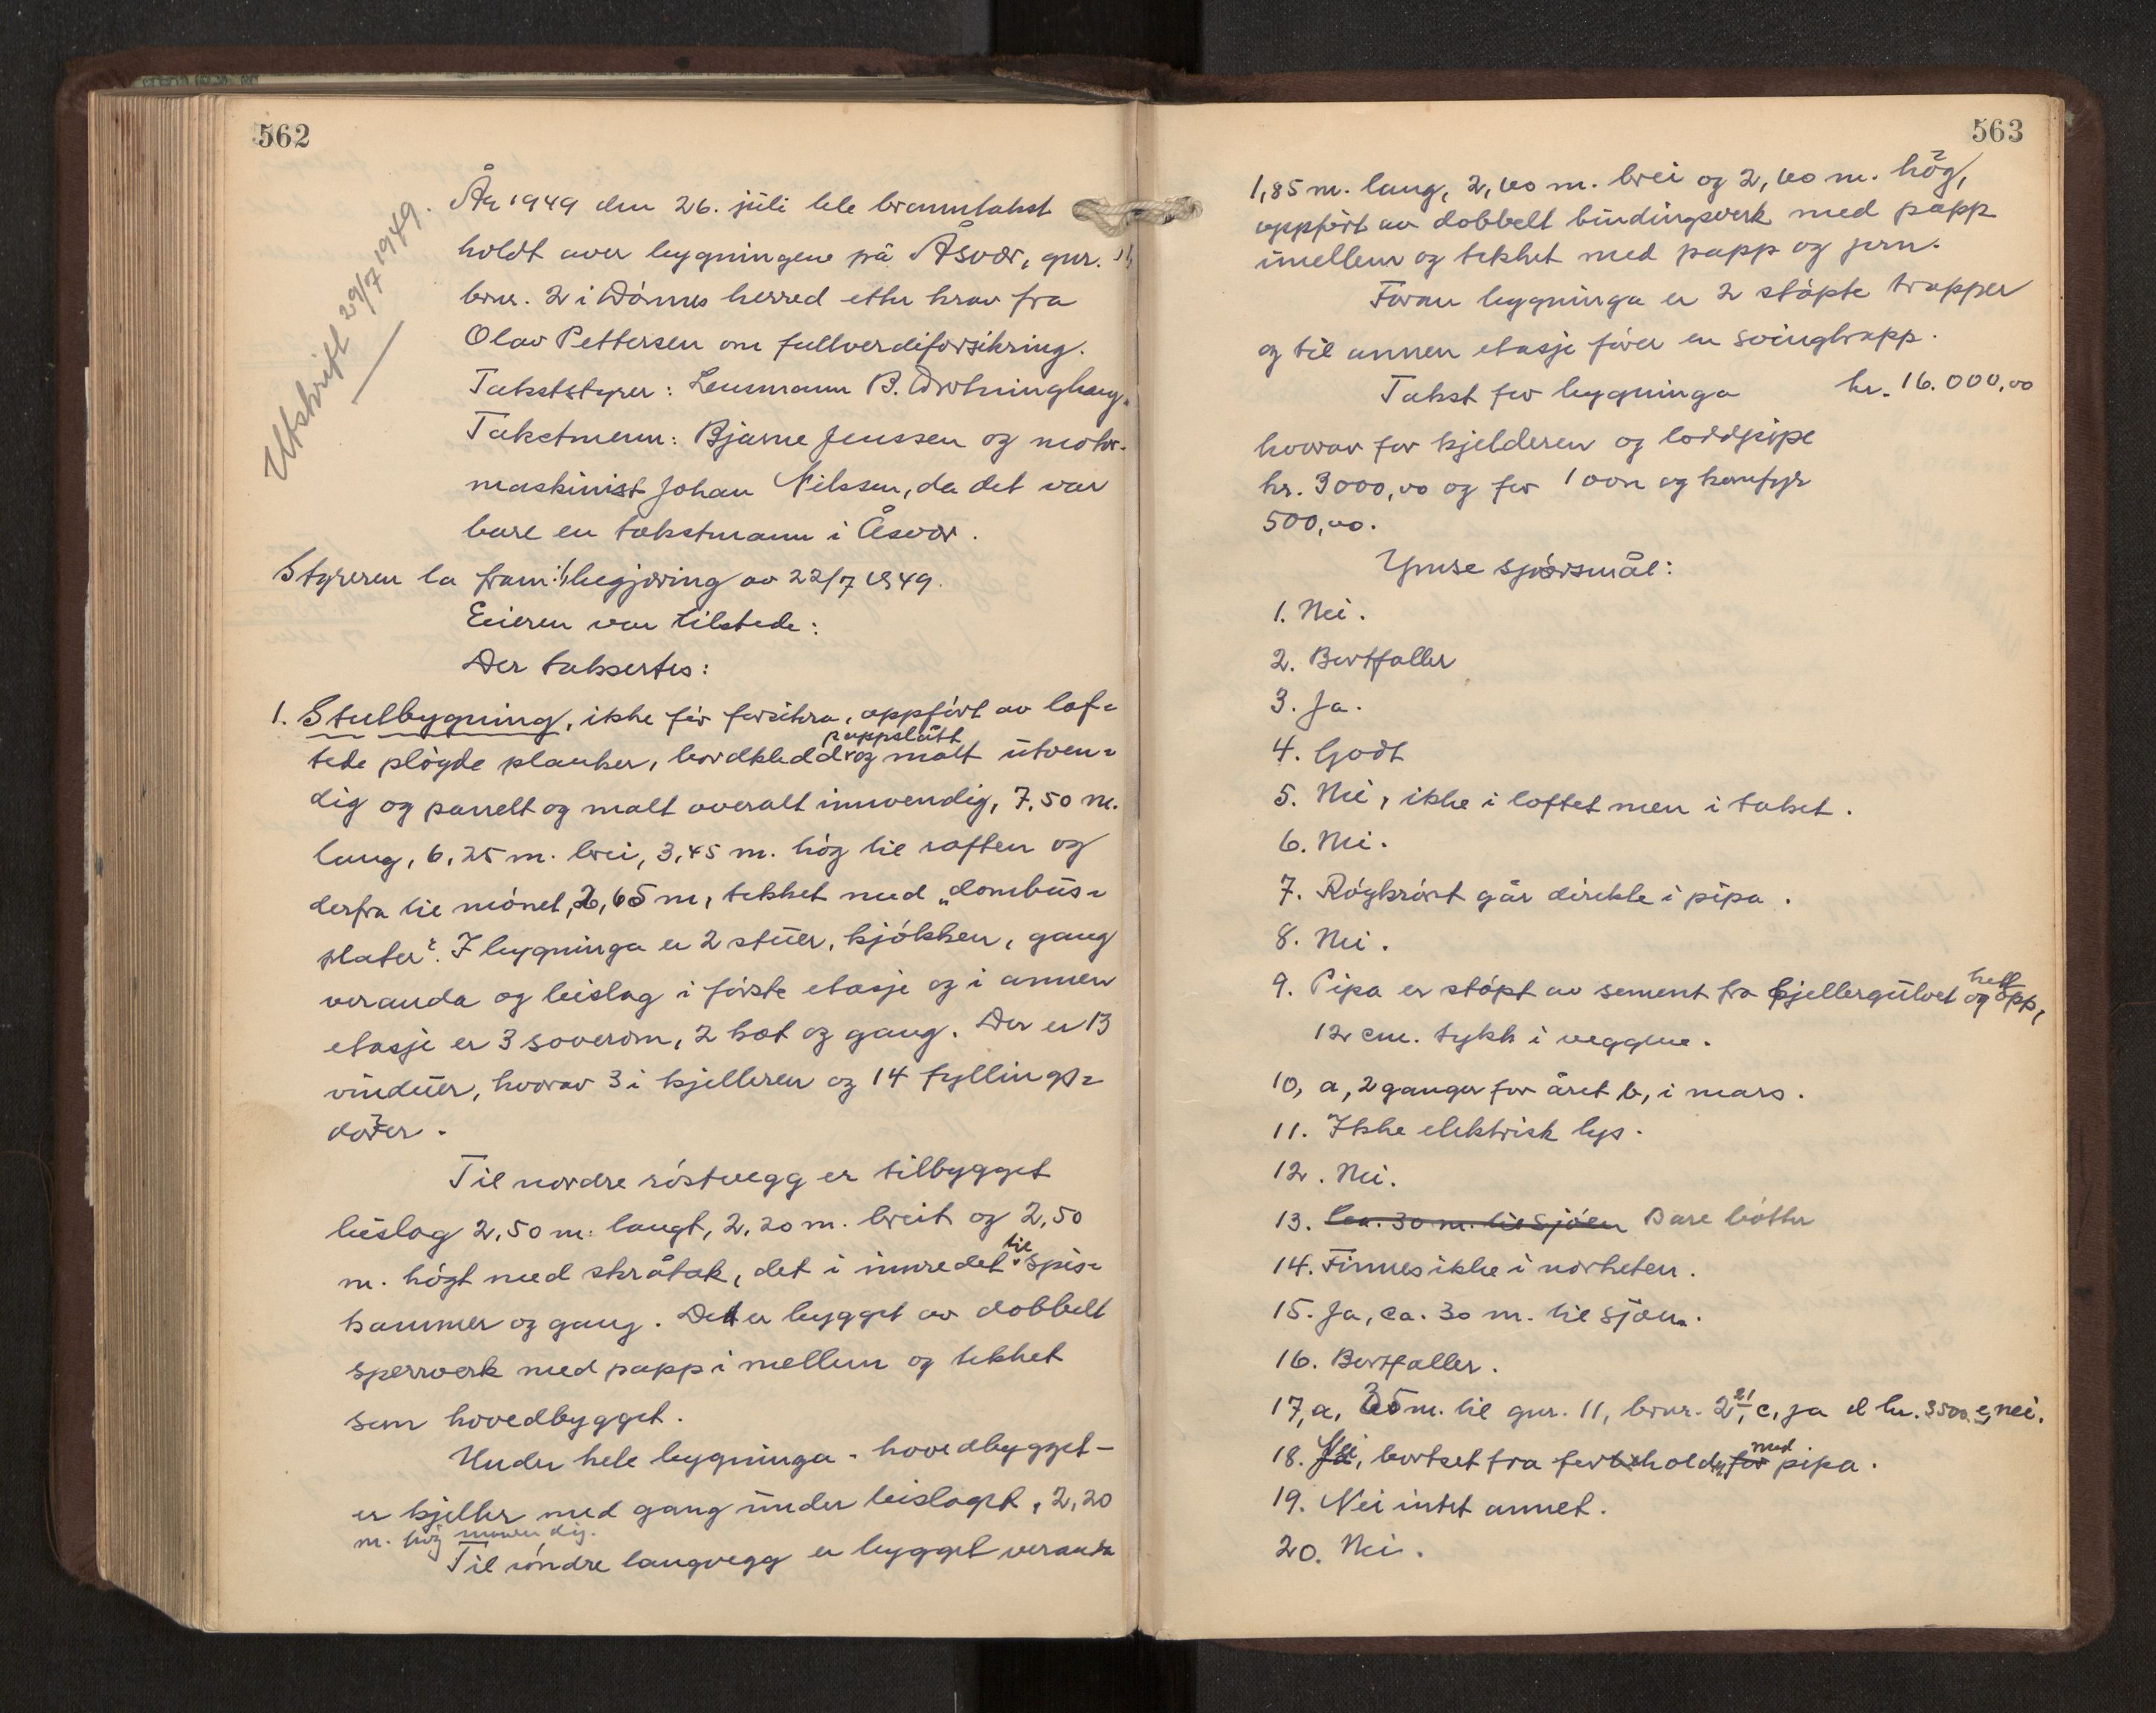 562
Utskrift 29/7 1949.
År 1949 den 26. juli ble branntakst
holdt over bygningene på Åsvær, gnr. 11,
brnr. 2 i Dønnes herred etter krav fra
Olav Pettersen om fullverdiforsikring.
Takststyrer: Lensmann B. Drotninghaug.
Takstmenn: Bjarne Jenssen og motor-
maskinist Johan Nilssen, da det var
bare en takstmann i Åsvær.
Styreren la fram: 1, begjæring av 22/7 1949.
Eieren var tilstede:
Der taksertes:
1. Stuebygning, ikke før forsikra, oppført av laf-
tede pløgde planker, bordkledd, pappslått og malt utven-
dig og panelt og malt overalt innvendig, 7,50 m.
lang, 6,25 m. brei, 3,45 m. høg til raften og
derfra til mønet, 2,65 m, tekket med "dombås-
plater". I bygninga er 2 stuer, kjøkken, gang
veranda og beislag i første etasje og i annen
etasje er 3 soverom, 2 kot og gang. Der er 13
vinduer, hvorav 3 i kjelleren og 14 fyllings-
dører.
Til nordre røstvegg er tilbygget
beislag 2,50 m. langt, 2,20 m. breit og 2,50
m. høgt med skråtak, det i innredet til spis-
kammer og gang. Det er bygget av dobbelt
sperrverk med papp i mellem og tekket
som hovedbygget.
Under hele bygninga - hovedbygget -
er kjeller med gang under beislaget, 2,20
m. høg innvendig.
Til søndre langvegg er bygget veranda
563
1,85 m. lang, 2,40 m. brei og 2,40 m. høg,
oppført av dobbelt bindingsverk med papp
imellem og tekket med papp og jern.
Foran bygninga er 2 støpte trapper
og til annen etasje fører en svingtrapp.
Takst for bygninga kr. 16.000,00
hvorav for kjelderen og loddpipe
kr. 3000,00 og for 1 ovn og komfyr
500,00.
Ymse spørsmål:
1. Nei.
2. Bortfaller
3. Ja.
4. Godt
5. Nei, ikke i loftet men i taket.
6. Nei.
7. Røykrørt går direkte i pipa.
8. Nei.
9. Pipa er støpt av sement fra kjellergulvet og helt opp,
12 cm. tykk i veggene.
10, a, 2 ganger for året b, i mars.
11. Ikke elektrisk lys.
12. Nei.
13. Ca. 30 m. til sjøen Bare bøtter
14. Finnes ikke i nærheten.
15. Ja, ca. 30 m. til sjøen.
16. Bortfaller.
17, a, 35 m. til gnr. 11, brnr. 2/21, c, ja d kr. 3500. e, nei.
18. Nei, bortset fra forholdet med pipa.
19. Nei intet annet.
20. Nei.